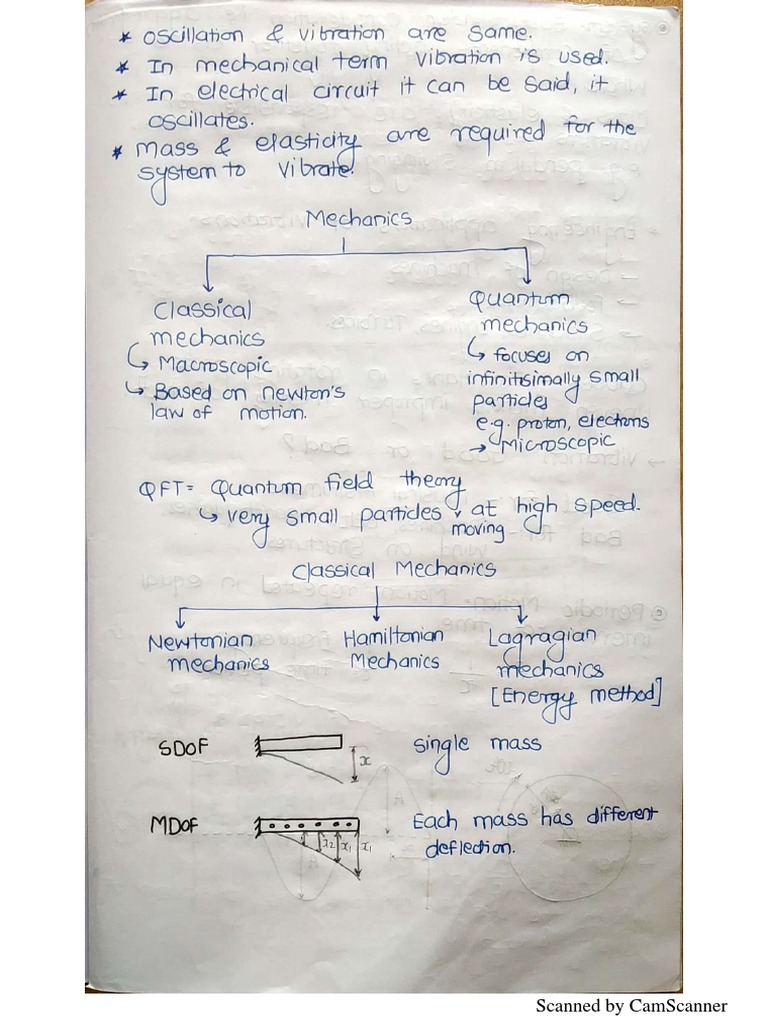 * Oscillation & vibration are same.
* In mechanical term vibration is used.
* In electrical circuit it can be said, it
oscillates.
* Mass & elasticity are required for the
system to vibrate.
Mechanics
Classical
mechanics
↳ Macroscopic
↳ Based on newton's
law of motion.
Quantum
mechanics
↳ focuses on
infinitisimally small
particles
e.g. proton, electrons
→ Microscopic
QFT = Quantum field theory
↳ very small particles moving at high speed.
Classical Mechanics
Newtonian
mechanics
Hamiltonian
Mechanics
Lagragian
mechanics
[Energy method]
SDOF
x
single mass
MDOF
x2 x1 x1
Each mass has different
deflection.
Scanned by CamScanner